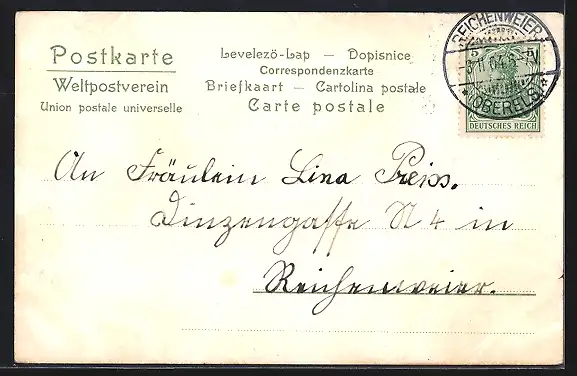 Postkarte
Weltpostverein
Union postale universelle
Levelező-Lap — Dopisnice
Correspondenzkarte
Briefkaart — Cartolina postale
Carte postale
REICHENWEIER
(OBERELS)
DEUTSCHES REICH
An Fräulein Lina Preiss.
Dinzengasse N 4 in
Reichenweier.